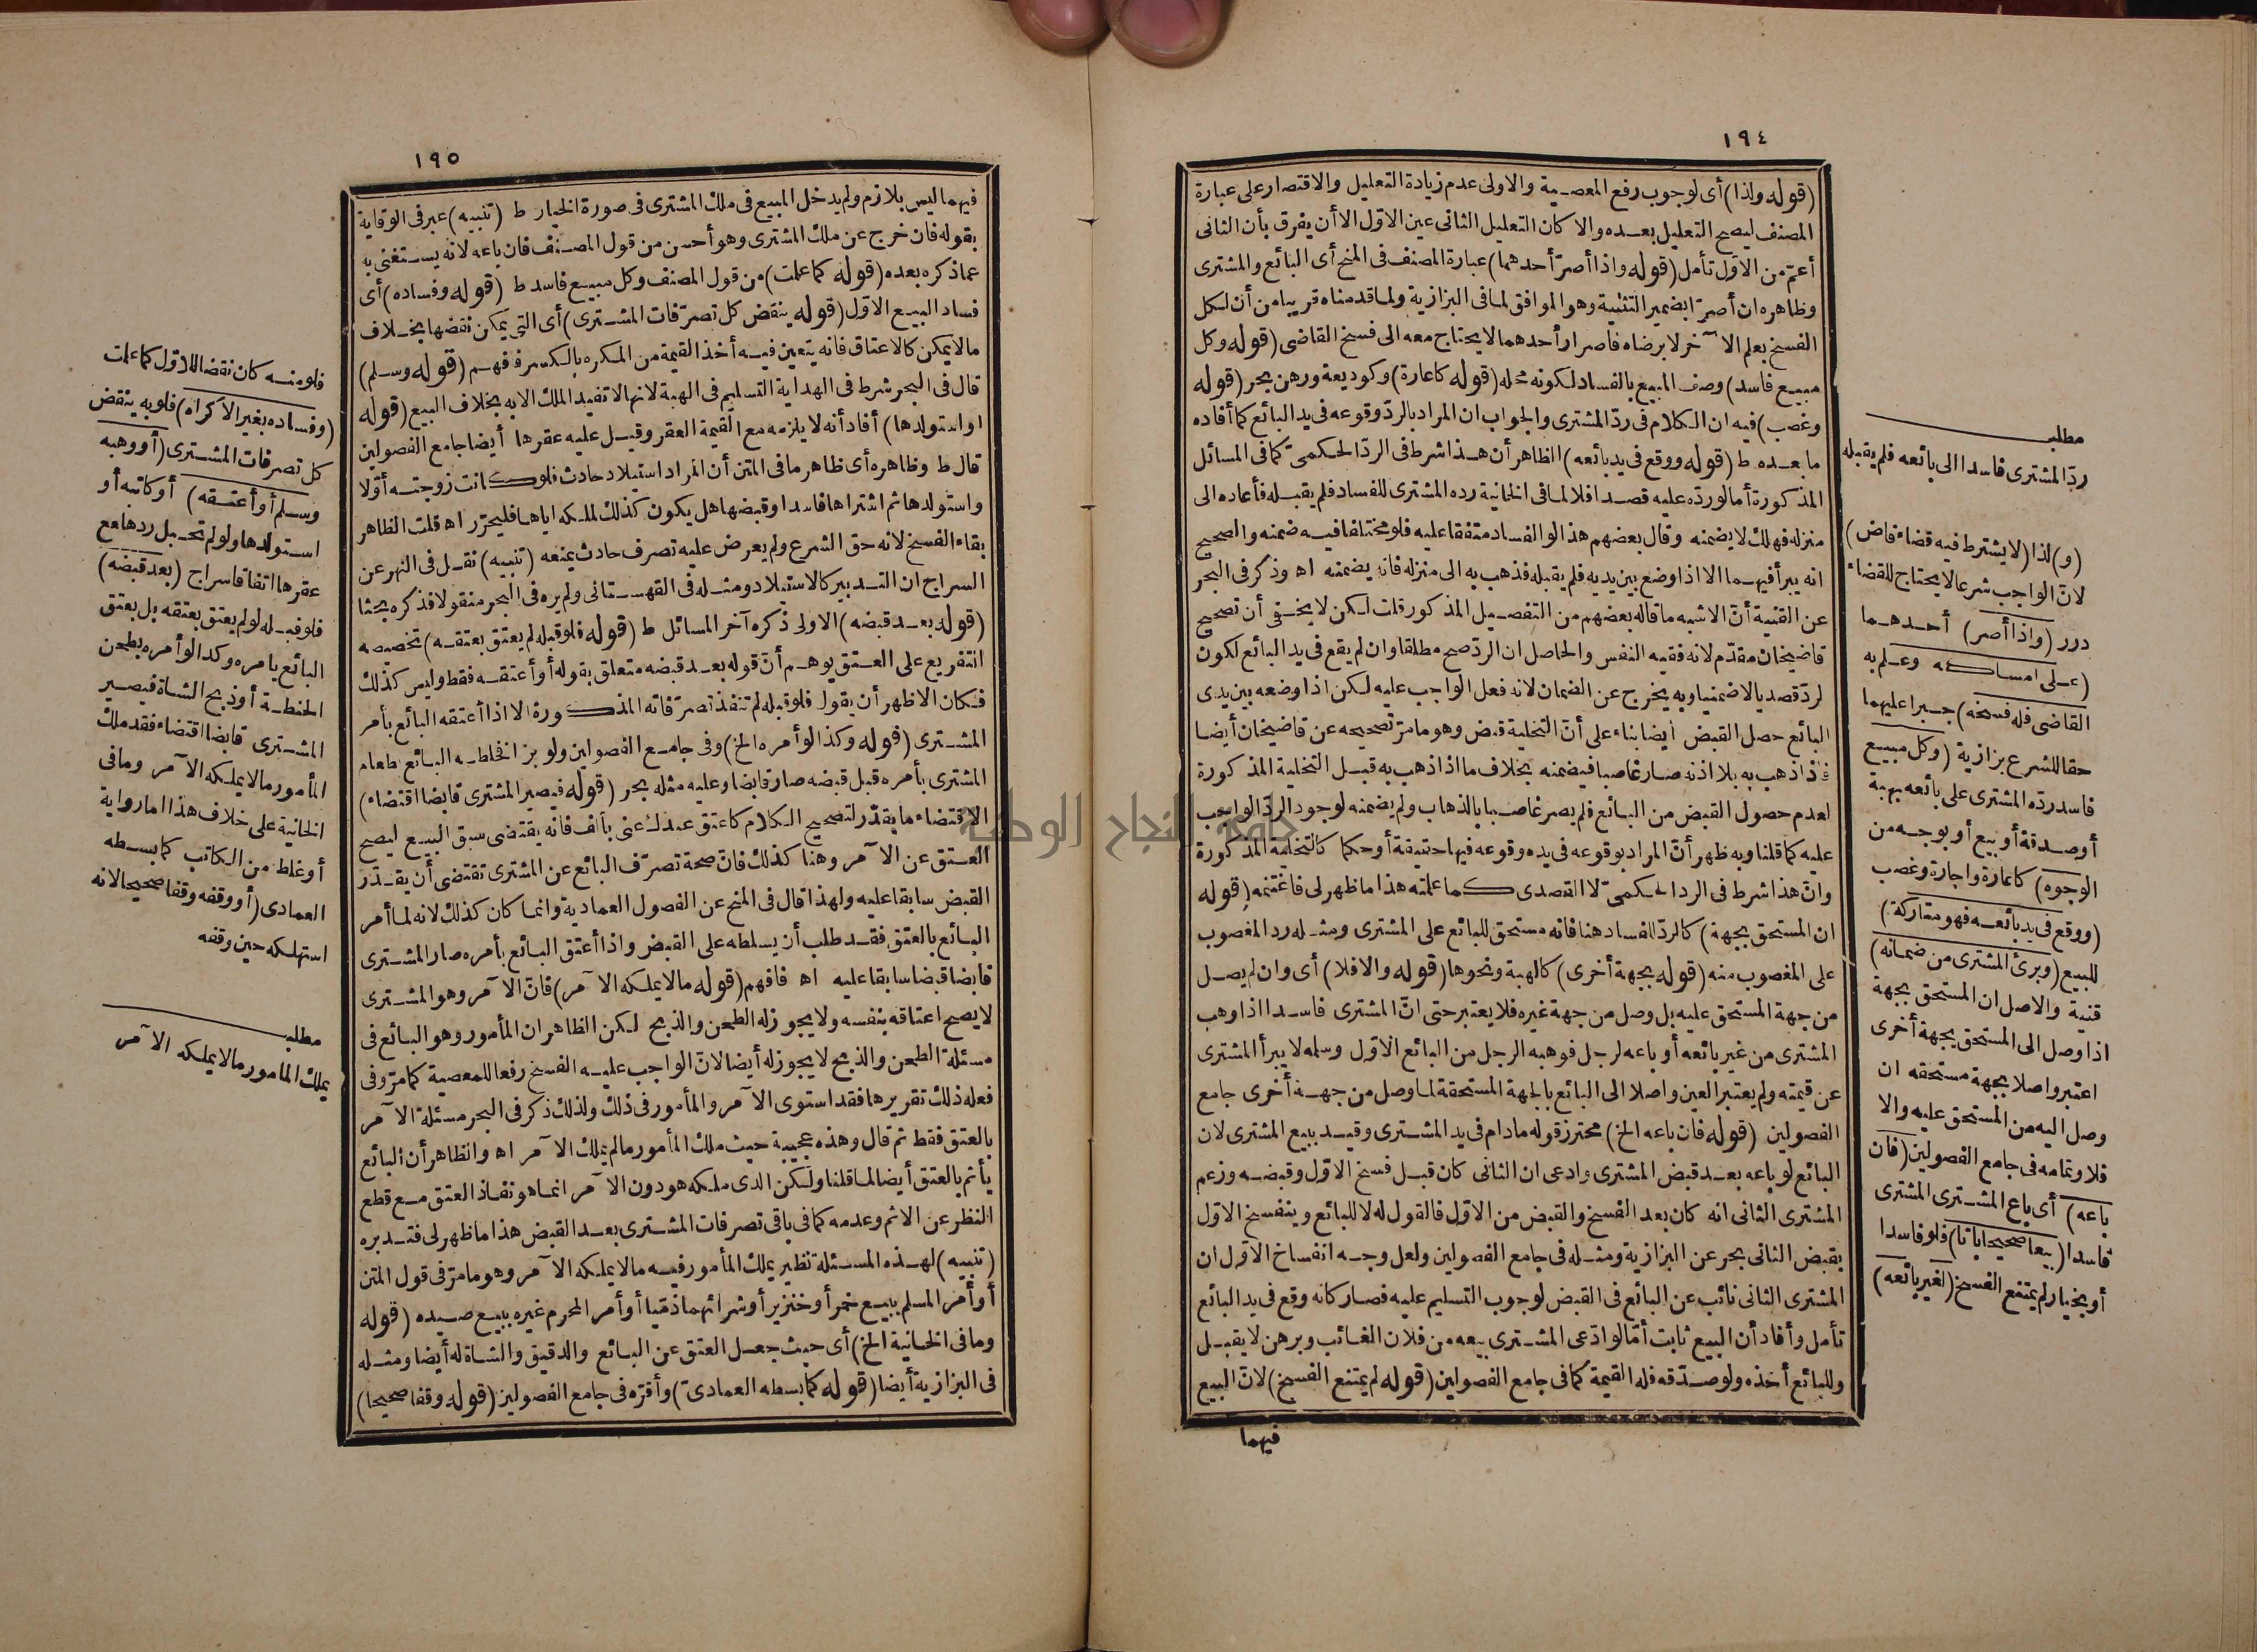 ١٩٤
(قوله ولذا) أى لوجوب رفع المعصية والاولى عدم زيادة التعليل والاقتصار على عبارة
المصنف ليصح التعليل بعده والا كان التعليل الثانى عين الاول الا أن يفرق بأن الثانى
أعم من الاول تأمل (قوله واذا أصر أحدهما) عبارة المصنف فى المنح أى البائع والمشترى
وظاهره ان أصرا بضمير التثنية وهو الموافق لما فى البزازية ولما قدمناه قريبا من أن لكل
الفسخ بعلم الآخر لا برضاه فاصرار أحدهما لا يحتاج معه الى فسخ القاضى (قوله وكل
مبيع فاسد) وصف المبيع بالفساد لكونه محله (قوله كاعارة) وكوديعة ورهن بحر (قوله
وغصب) فيه ان الكلام فى رد المشترى والجواب ان المراد بالرد وقوعه فى يد البائع كما أفاده
ما بعده ط (قوله ووقع فى يد بائعه) الظاهر أن هذا شرط فى الرد الحكمى كما فى المسائل
المذكورة أما لو رده عليه قصدا فلا لما فى الخانية رده المشترى للفساد فلم يقبله فأعاده الى
منزله فهلك لا يضمنه وقال بعضهم هذا لو الفساد متفقا عليه فلو مختلفا فيه ضمنه والصحيح
انه يبرأ فيهما الا اذا وضع بين يديه فلم يقبله فذهب به الى منزله فانه يضمنه اه وذكر فى البحر
عن القنية أن الاشبه ما قاله بعضهم من التفصيل المذكور قلت لكن لا يخفى أن تصحيح
قاضيخان مقدم لانه فقيه النفس والحاصل ان الرد صح مطلقا وان لم يقع فى يد البائع لكون
لرد قصديا لا ضمنيا وبه يخرج عن الضمان لانه فعل الواجب عليه لكن اذا وضعه بين يدى
البائع حصل القبض أيضا بناء على أن التخلية قبض وهو ما مر تصحيحه عن قاضيخان أيضا
فاذا ذهب به بلا اذنه صار غاصبا فيضمنه بخلاف ما اذا ذهب به قبل التخلية المذكورة
لعدم حصول القبض من البائع فلم يصر غاصبا بالذهاب ولم يضمنه لوجود الرد الواجب
عليه كما قلنا وبه ظهر أن المراد بوقوعه فى يده وقوعه فيها حقيقة أو حكما كالتخلية المذكورة
وان هذا شرط فى الرد الحكمى لا القصدى كما علمته هذا ما ظهر لى فاغتنمه (قوله
ان المستحق بجهة) كالرد للفساد هنا فانه مستحق للبائع على المشترى ومثله رد المغصوب
على المغصوب منه (قوله بجهة أخرى) كالهبة ونحوها (قوله والا فلا) أى وان لم يصل
من جهة المستحق عليه بل وصل من جهة غيره فلا يعتبر حتى ان المشترى فاسدا اذا وهب
المشترى من غير بائعه أو باعه لرجل فوهبه الرجل من البائع الاول وسلمه لا يبرأ المشترى
عن قيمته ولم يعتبر العين واصلا الى البائع بالجهة المستحقة لما وصل من جهة أخرى جامع
الفصولين (قوله فان باعه الخ) محترز قوله مادام فى يد المشترى وقيد ببيع المشترى لان
البائع لو باعه بعد قبض المشترى وادعى ان الثانى كان قبل فسخ الاول وقبضه وزعم
المشترى الثانى انه كان بعد الفسخ والقبض من الاول فالقول له لا للبائع وينفسخ الاول
بقبض الثانى بحر عن البزازية ومثله فى جامع الفصولين ولعل وجه انفساخ الاول ان
المشترى الثانى نائب عن البائع فى القبض لوجوب التسليم عليه فصار كانه وقع فى يد البائع
تأمل وأفاد أن البيع ثابت أما لو ادعى المشترى بيعه من فلان الغائب وبرهن لا يقبل
وللبائع أخذه ولو صدقه فله القيمة كما فى جامع الفصولين (قوله لم يمتنع الفسخ) لان البيع
فيهما
مطلب
رد المشترى فاسدا الى بائعه فلم يقبله
(و) لذا (لا يشترط فيه قضاء قاض)
لان الواجب شرعا لا يحتاج للقضاء
درر (واذا أصر) أحدهما
(على امساكه وعلم به
القاضى فله فسخه) جبرا عليهما
حقا للشرع بزازية (وكل مبيع
فاسد رده المشترى على بائعه بهبة
أو صدقة أو بيع أو بوجه من
الوجوه) كاعارة واجارة وغصب
(ووقع فى يد بائعه فهو متاركة)
للبيع (وبرئ المشترى من ضمانه)
قنية والاصل ان المستحق بجهة
اذا وصل الى المستحق بجهة أخرى
اعتبر واصلا بجهة مستحقه ان
وصل اليه من المستحق عليه والا
فلا وتمامه فى جامع الفصولين (فان
باعه) أى باع المشترى المشترى
فاسدا (بيعا صحيحا باتا) فلو فاسدا
أو بخيار لم يمتنع الفسخ (لغير بائعه)
١٩٥
فيهما ليس بلازم ولم يدخل المبيع فى ملك المشترى فى صورة الخيار ط (تنبيه) عبر فى الوقاية
بقوله فان خرج عن ملك المشترى وهو أحسن من قول المصنف فان باعه لانه يستغنى به
عما ذكره بعده (قوله كما علمت) من قول المصنف وكل مبيع فاسد ط (قوله وفساده) أى
فساد البيع الاول (قوله ينقض كل تصرفات المشترى) أى التى يمكن نقضها بخلاف
ما لا يمكن كالاعتاق فانه يتعين فيه أخذ القيمة من المكره بالكسر فافهم (قوله وسلم)
قال فى البحر شرط فى الهداية التسليم فى الهبة لانها لا تفيد الملك الا به بخلاف البيع (قوله
او استولدها) أفاد أنه لا يلزمه مع القيمة العقر وقيل عليه عقرها أيضا جامع الفصولين
قال ط وظاهره أى ظاهر ما فى المتن أن المراد استيلاد حادث فلو كانت زوجته أولا
واستولدها ثم اشتراها فاسدا وقبضها هل يكون كذلك لملكه اياها فليحرر اه قلت الظاهر
بقاء الفسخ لانه حق الشرع ولم يعرض عليه تصرف حادث يمنعه (تنبيه) نقل فى النهر عن
السراج ان التدبير كالاستيلاد ومثله فى القهستانى ولم يره فى البحر منقولا فذكره بحثا
(قوله بعد قبضه) الاولى ذكره آخر المسائل ط (قوله فلو قبله لم يعتق بعتقه) تخصيصه
التفريع على العتق يوهم أن قوله بعد قبضه متعلق بقوله أو أعتقه فقط وليس كذلك
فكان الاظهر أن يقول فلو قبله لم تنفذ تصرفاته المذكورة الا اذا أعتقه البائع بأمر
المشترى (قوله وكذا لو أمره الخ) وفى جامع الفصولين ولو بر انخلطه البائع بطعام
المشترى بأمره قبل قبضه صار قابضا وعليه مثله بحر (قوله فيصير المشترى قابضا اقتضاء)
الاقتضاء ما يقدر لتصحيح الكلام كاعتق عبدك عنى بألف فانه يقتضى سبق البيع ليصح
العتق عن الآمر وهنا كذلك فان صحة تصرف البائع عن المشترى تقتضى أن يقدر
القبض سابقا عليه ولهذا قال فى المنح عن الفصول العمادية وانما كان كذلك لانه لما أمر
البائع بالعتق فقد طلب أن يسلطه على القبض واذا أعتق البائع بأمره صار المشترى
قابضا قبضا سابقا عليه اه فافهم (قوله ما لا يملكه الآمر) فان الآمر وهو المشترى
لا يصح اعتاقه بنفسه ولا يجوز له الطحن والذبح لكن الظاهر ان المأمور وهو البائع فى
مسئلة الطحن والذبح لا يجوز له أيضا لان الواجب عليه الفسخ رفعا للمعصية كما مر وفى
فعله ذلك تقريرها فقد استوى الآمر والمأمور فى ذلك ولذلك ذكر فى البحر مسئلة الآمر
بالعتق فقط ثم قال وهذه عجيبة حيث ملك المأمور ما لم يملك الآمر اه والظاهر أن البائع
يأثم بالعتق أيضا لما قلنا ولكن الذى ملكه هو دون الآمر انما هو نفاذ العتق مع قطع
النظر عن الاثم وعدمه كما فى باقى تصرفات المشترى بعد القبض هذا ما ظهر لى فتدبره
(تنبيه) لهذه المسئلة نظير يملك المأمور فيه ما لا يملكه الآمر وهو ما مر فى قول المتن
أو أمر المسلم ببيع خمر أو خنزير أو شرائهما ذميا أو أمر المحرم غيره ببيع صيده (قوله
وما فى الخانية الخ) أى حيث جعل العتق عن البائع والدقيق والشاة له أيضا ومثله
فى البزازية أيضا (قوله كما بسطه العمادى) وأقره فى جامع الفصولين (قوله وقفا صحيحا)
فلو منه كان نقضا للاول كما علمت
(وفساده بغير الاكراه) فلو به ينقض
كل تصرفات المشترى (أو وهبه
وسلم أو أعتقه) أو كاتبه أو
استولدها ولو لم تحبل ردها مع
عقرها اتفاقا سراج (بعد قبضه)
فلو قبله لم يعتق بعتقه بل بعتق
البائع بامره وكذا لو أمره بطحن
الحنطة أو ذبح الشاة فيصير
المشترى قابضا اقتضاء فقد ملك
المأمور ما لا يملكه الآمر وما فى
الخانية على خلاف هذا اما رواية
أو غلط من الكاتب كما بسطه
العمادى (أو وقفه وقفا صحيحا) لانه
استهلكه حين وقفه
مطلب
يملك المامور ما لا يملكه الآمر
جامعة النجاح الوطنية